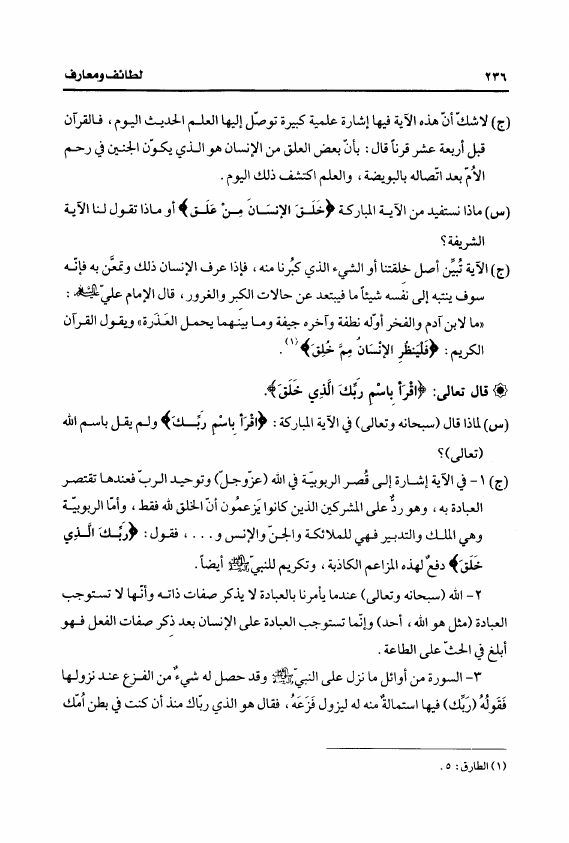 ٢٣٦ لطائف ومعارف
(ج) لاشكّ أنّ هذه الآية فيها إشارة علمية كبيرة توصّل إليها العلـم الحديـث اليوم، فـالقرآن
قبل أربعة عشر قرناً قال: بأنّ بعض العلق من الإنسان هو الـذي يكـوّن الجنـين في رحـم
الأمّ بعد اتّصاله بالبويضة، والعلم اكتشف ذلك اليوم.
(س) ماذا نستفيد من الآيـة المباركة ﴿خَلَـقَ الإنسَـانَ مِـنْ عَلَـقٍ﴾ أو مـاذا تقـول لنـا الآيـة
الشريفة؟
(ج) الآية تُبيِّن أصل خلقتنا أو الشيء الذي كبُرنا منه، فإذا عرف الإنسان ذلك وتمعَّن به فإنّـه
سوف ينتبه إلى نفسه شيئاً ما فيبتعد عن حالات الكِبر والغرور، قال الإمام عليّ :
«ما لابن آدم والفخر أوّله نطفة وآخره جيفة ومـا بينـهما يحمـل العَـذَرة» ويقـول القـرآن
الكريم: ﴿فَلْيَنظُرِ الإنْسَانُ مِمَّ خُلِقَ﴾(١).
قال تعالى: ﴿اقْرَأْ بِاسْمِ رَبِّكَ الَّذِي خَلَقَ﴾.
(س) لماذا قال (سبحانه وتعالى) في الآية المباركة: ﴿اقْرَأْ بِاسْمِ رَبِّـكَ﴾ ولـم يقـل باسـم الله
(تعالى)؟
(ج) ١- في الآية إشـارة إلـى قَصر الربوبيّة في الله (عزّوجلّ) وتوحيد الـربّ فعندهـا تقتصـر
العبادة به، وهو ردٌّ على المشركين الذين كانوا يَزعمُون أنّ الخلق لله فقط، وأمّا الربوبيّـة
وهي الملـك والتدبـير فـهي للملائكـة والجـنّ والإنس و...، فقـول: ﴿رَبِّـكَ الَّـذِي
خَلَقَ﴾ دفعٌ لهذه المزاعم الكاذبة، وتكريم للنبيّ ﷺ أيضاً.
٢- الله (سبحانه وتعالى) عندما يأمرنا بالعبادة لا يذكر صفات ذاتـه وأنّـها لا تسـتوجب
العبادة (مثل هو الله، أحد) وإنّما تستوجب العبادة على الإنسان بعد ذكر صفات الفعل فـهو
أبلغ في الحثّ على الطاعة.
٣- السورة من أوائل ما نزل على النبيّ ﷺ وقد حصل له شيءٌ من الفـزع عنـد نزولـها
فَقَولُهُ (رَبِّك) فيها استمالةٌ منه له ليزول فَزَعَهُ، فقال هو الذي ربّاك منذ أن كنت في بطن أمّك
(١) الطارق: ٥.